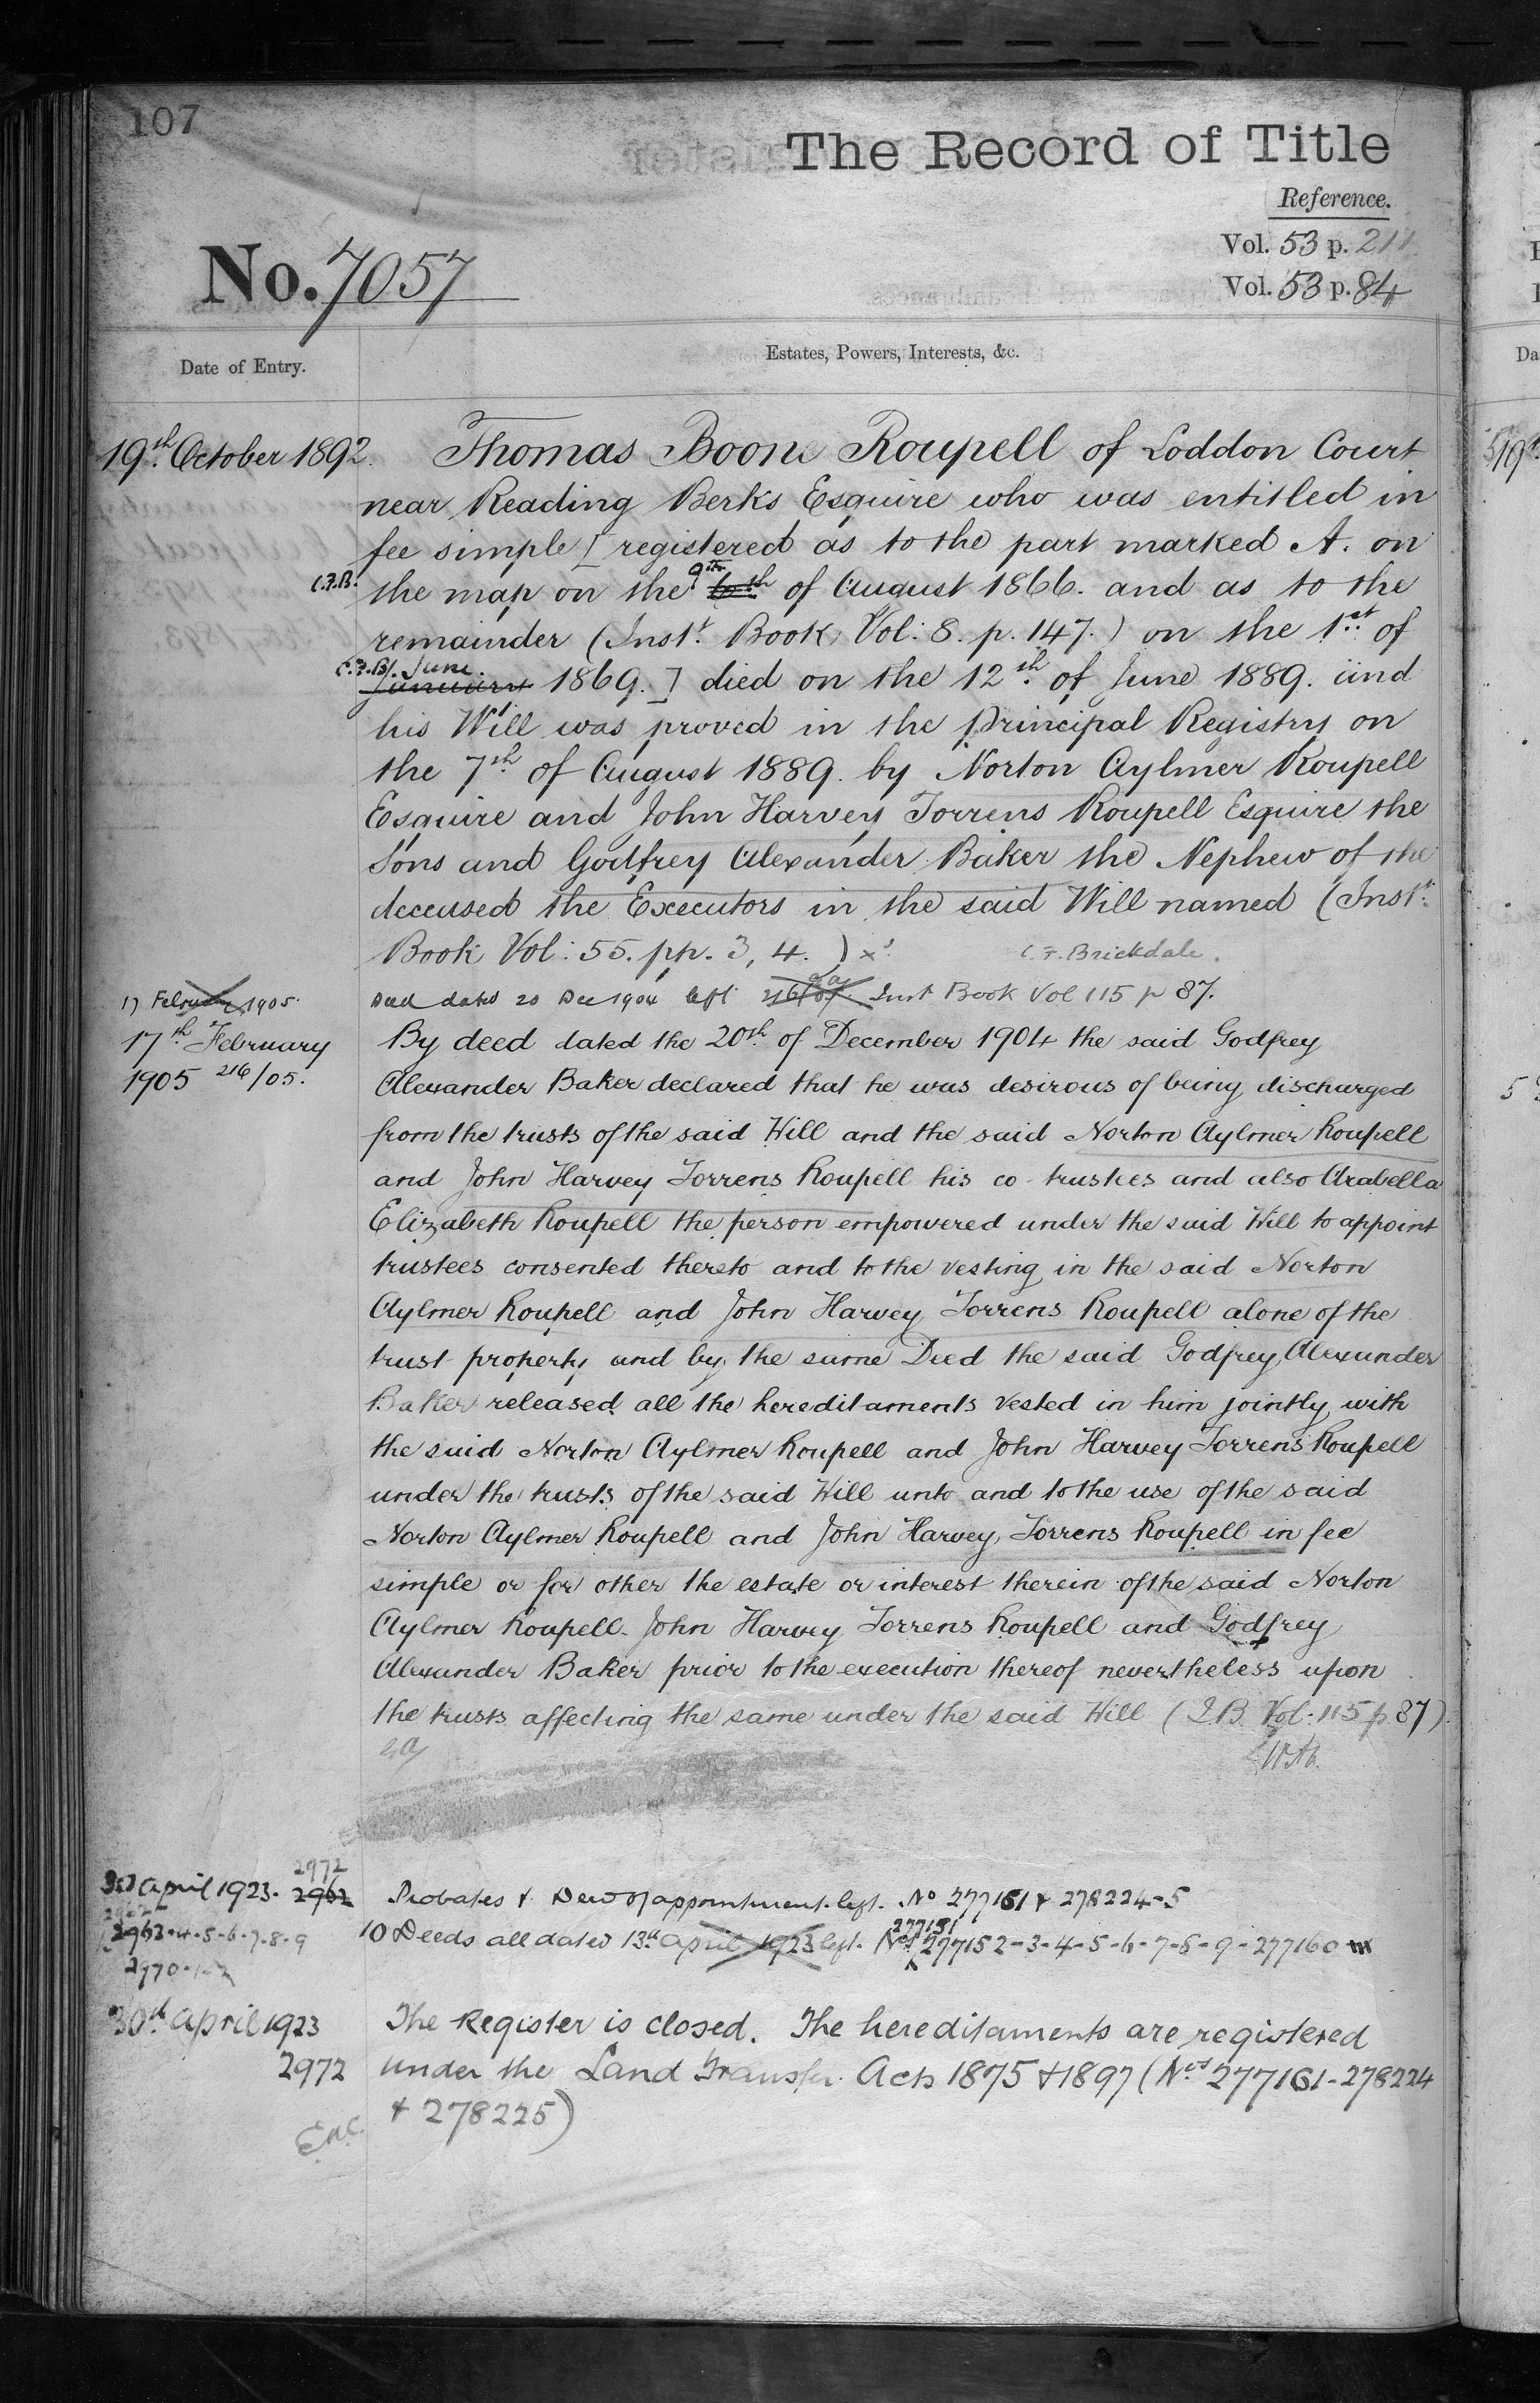 107
The Record of Title
Reference.
Vol. 53 p. 211
Vol. 53 p. 84
No. 7057
Date of Entry.
Estates, Powers, Interests, &c.
19th October 1892. Thomas Boone Roupell of Loddon Court
near Reading Berks Esquire who was entitled in
fee simple [registered as to the part marked A. on
C.F.B. the map on the 9th of August 1866. and as to the
remainder (Inst. Book Vol: 8. p. 147.) on the 1st of
C.F.B. June
January 1869.] died on the 12th of June 1889. and
his Will was proved in the Principal Registry on
the 7th of August 1889. by Norton Aylmer Roupell
Esquire and John Harvey Torrens Roupell Esquire the
Sons and Godfrey Alexander Baker the Nephew of the
deceased the Executors in the said Will named (Inst.
Book Vol: 55. pp. 3, 4.) C. F. Brickdale.
17 February 1905. Deed dated 20 Dec 1904 left 216/05 Inst Book Vol 115 p 87.
17th February
1905 216/05.
By deed dated the 20th of December 1904 the said Godfrey
Alexander Baker declared that he was desirous of being discharged
from the trusts of the said Will and the said Norton Aylmer Roupell
and John Harvey Torrens Roupell his co-trustees and also Arabella
Elizabeth Roupell the person empowered under the said Will to appoint
trustees consented thereto and to the vesting in the said Norton
Aylmer Roupell and John Harvey Torrens Roupell alone of the
trust property and by the same Deed the said Godfrey Alexander
Baker released all the hereditaments vested in him jointly with
the said Norton Aylmer Roupell and John Harvey Torrens Roupell
under the trusts of the said Will unto and to the use of the said
Norton Aylmer Roupell and John Harvey Torrens Roupell in fee
simple or for other the estate or interest therein of the said Norton
Aylmer Roupell John Harvey Torrens Roupell and Godfrey
Alexander Baker prior to the execution thereof nevertheless upon
the trusts affecting the same under the said Will (I.B. Vol: 115 p. 87).
30 April 1923. 2972 2962 Probates & Deed of appointment left. No 277161 & 278224-5
2963-4-5-6-7-8-9
2970-1-2
10 Deeds all dated 13th April 1923 left. Nos 277151 277152-3-4-5-6-7-8-9-277160
30th April 1923
2972
The Register is closed. The hereditaments are registered
under the Land Transfer Acts 1875 & 1897 (Nos 277161-278224
& 278225)